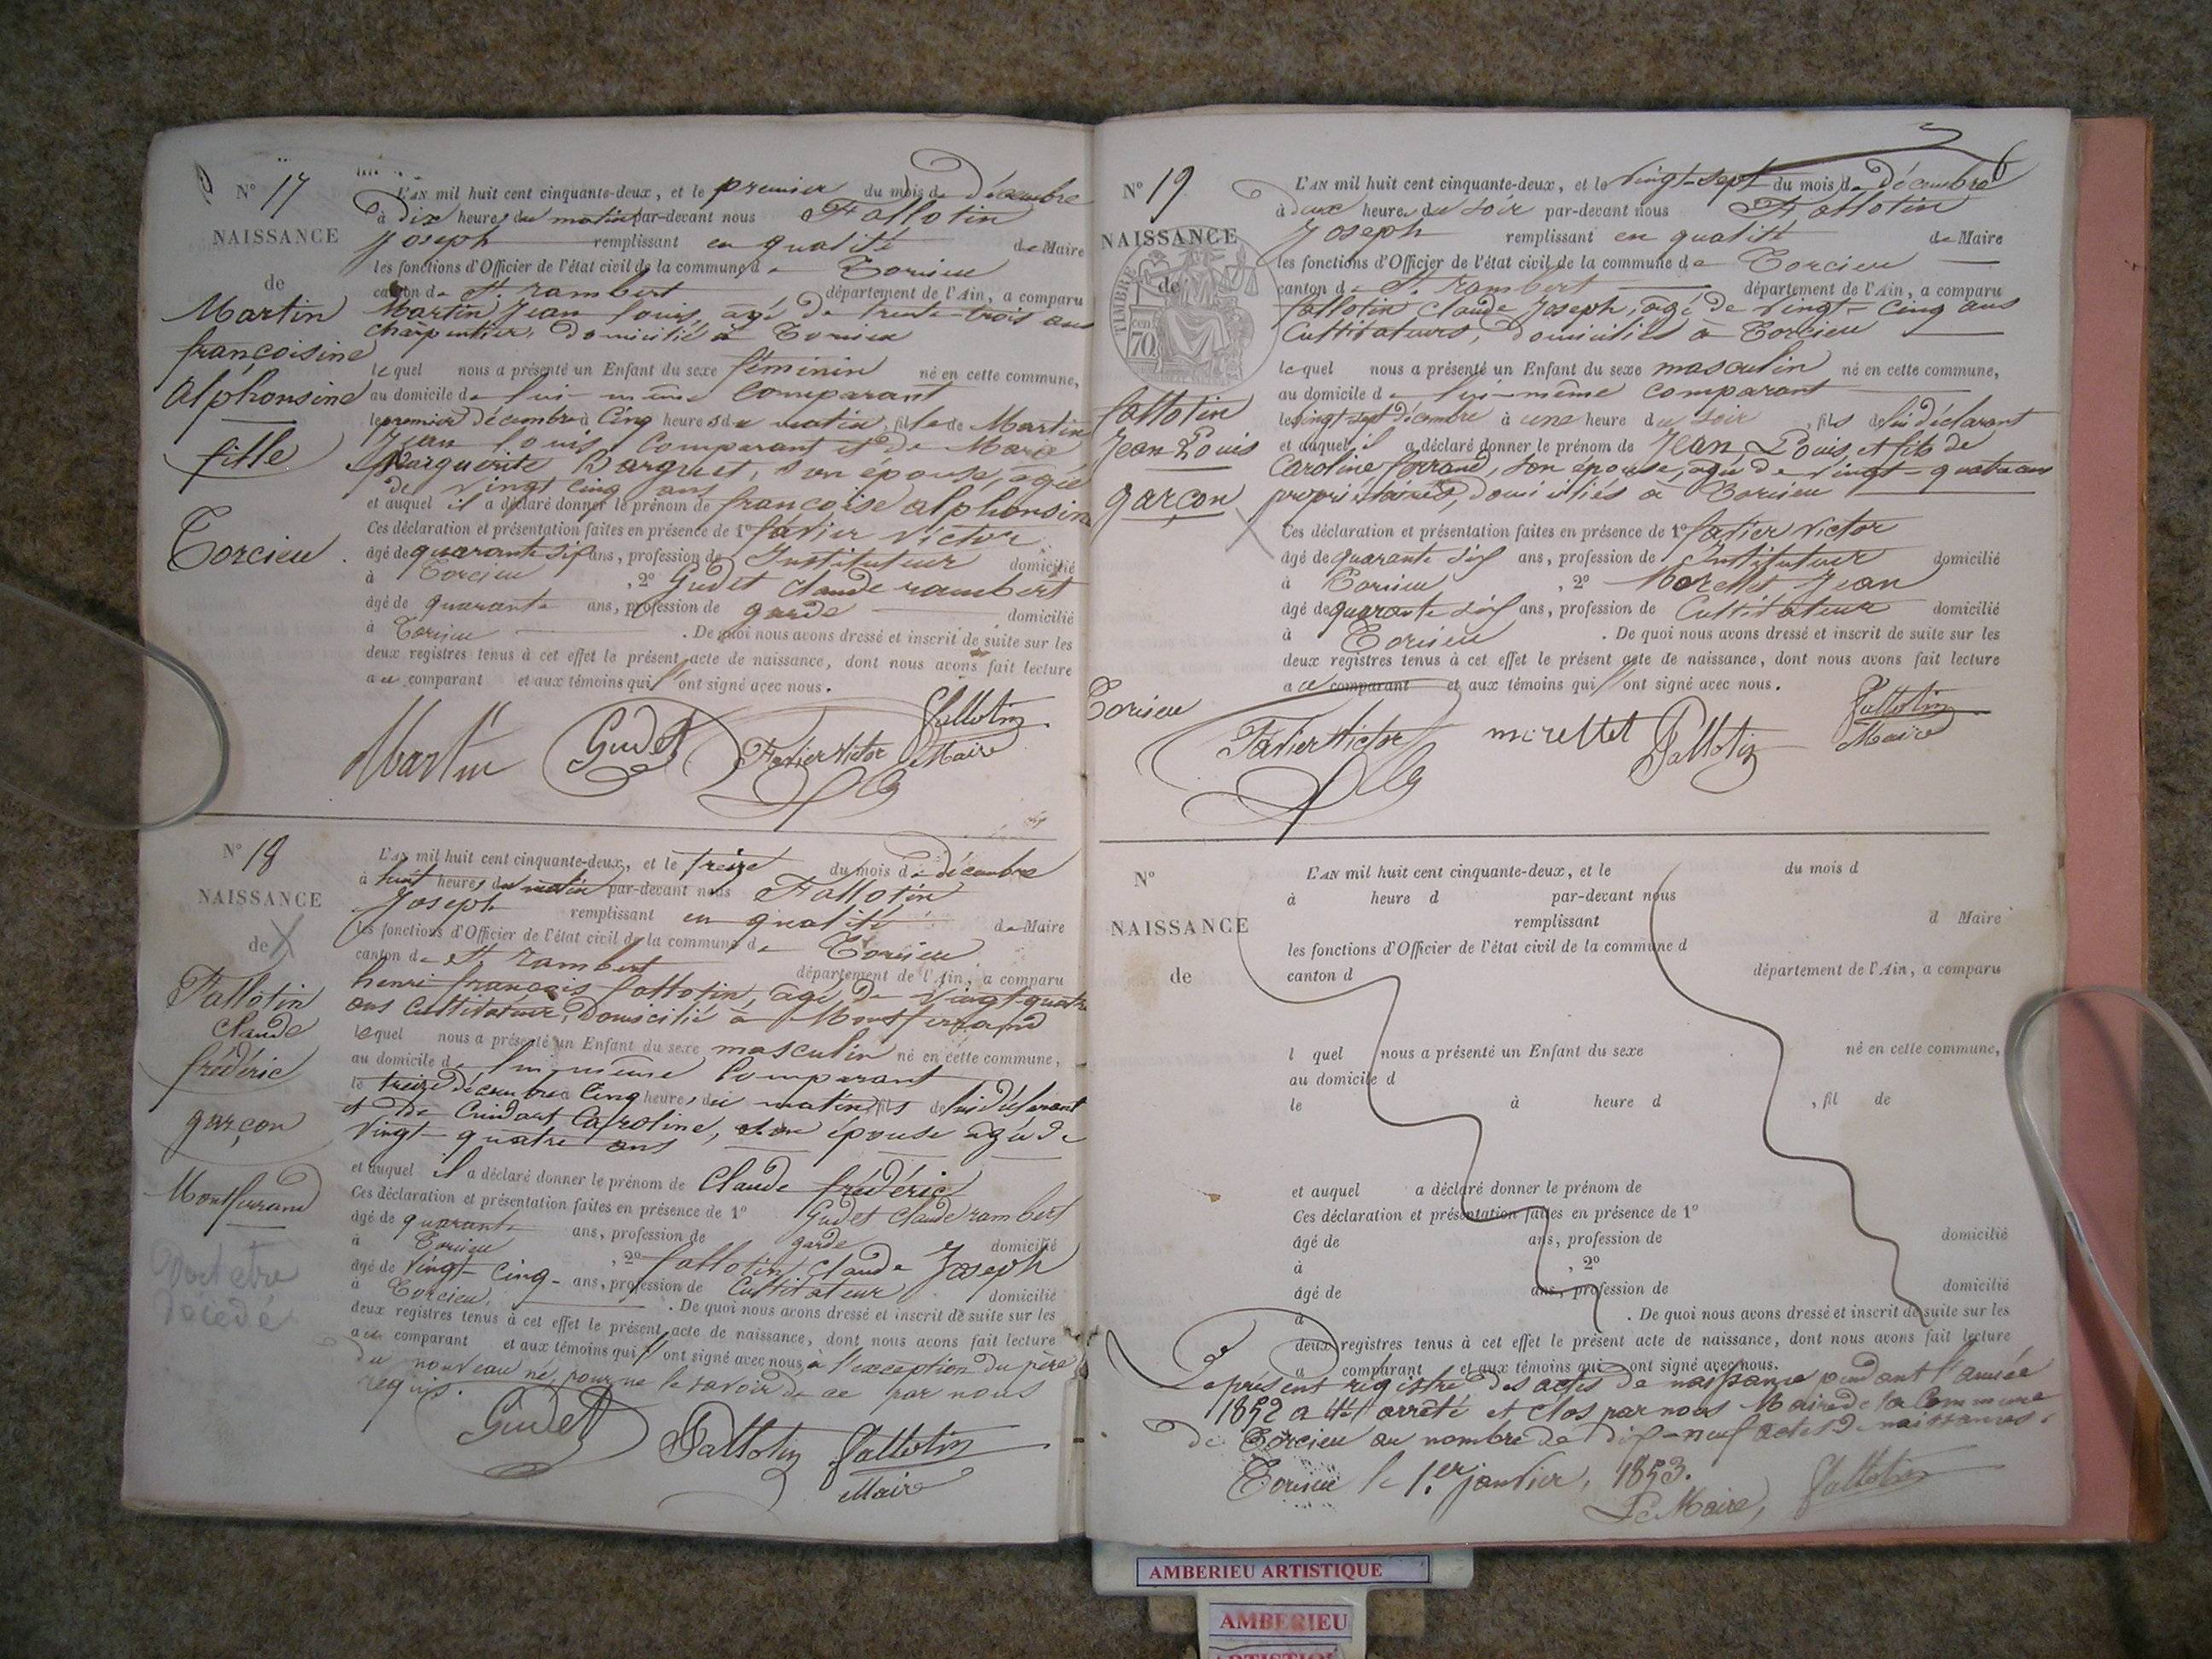 N° 17
NAISSANCE
de
Martin
françoisine
alphonsine
fille
Torcieu
L'AN mil huit cent cinquante-deux, et le premier du mois de décembre
à dix heures du matin par-devant nous Fallotin
Joseph remplissant en qualité de Maire
les fonctions d'Officier de l'état civil de la commune de Torcieu
canton de St. rambert département de l'Ain, a comparu
Martin Jean louis, agé de trente-trois ans
charpentier, domicilié à Torcieu
lequel nous a présenté un Enfant du sexe féminin né en cette commune,
au domicile de lui-même comparant
le premier décembre à Cinq heures du matin, fille de Martin
Jean louis, Comparant et de Marie
Marguerite son épouse, agée
de vingt cinq ans
et auquel il a déclaré donner le prénom de françoise alphonsine
Ces déclaration et présentation faites en présence de 1° favier victor
âgé de quarante six ans, profession de Instituteur domicilié
à Torcieu, 2° Gudet claude rambert
âgé de quarante ans, profession de garde domicilié
à Torcieu. De quoi nous avons dressé et inscrit de suite sur les
deux registres tenus à cet effet le présent acte de naissance, dont nous avons fait lecture
au comparant et aux témoins qui l'ont signé avec nous.
Martin Gudet Favier Victor fallotin
Maire
N° 18
NAISSANCE
de
Fallotin
claude
frédéric
garçon
Montferrand
peut etre
décédé
L'AN mil huit cent cinquante-deux, et le treize du mois de décembre
à huit heures du matin par-devant nous Fallotin
Joseph remplissant en qualité de Maire
les fonctions d'Officier de l'état civil de la commune de Torcieu
canton de St. rambert département de l'Ain, a comparu
henri françois fallotin, agé de vingt-quatre
ans Cultivateur, domicilié à Montferrand
lequel nous a présenté un Enfant du sexe masculin né en cette commune,
au domicile de lui-même Comparant
le treize décembre à Cinq heures du matin, fils de lui déclarant
et de Caroline, son épouse agée de
vingt-quatre ans
et auquel il a déclaré donner le prénom de Claude frédéric
Ces déclaration et présentation faites en présence de 1° Gudet claude rambert
âgé de quarante ans, profession de garde domicilié
à Torcieu, 2° fallotin claude Joseph
âgé de vingt-cinq ans, profession de Cultivateur domicilié
à Torcieu. De quoi nous avons dressé et inscrit de suite sur les
deux registres tenus à cet effet le présent acte de naissance, dont nous avons fait lecture
au comparant et aux témoins qui l'ont signé avec nous, à l'exception du père
du nouveau né, pour ne le savoir de ce par nous
requis.
Gudet fallotin fallotin
Maire
N° 19
NAISSANCE
de
TIMBRE
70
fallotin
Jean-Louis
garçon
Torcieu
L'AN mil huit cent cinquante-deux, et le vingt-sept du mois de décembre
à deux heures du soir par-devant nous Fallotin
Joseph remplissant en qualité de Maire
les fonctions d'Officier de l'état civil de la commune de Torcieu
canton de St. rambert département de l'Ain, a comparu
fallotin Claude Joseph, agé de vingt-cinq ans
Cultivateurs, domiciliés à Torcieu
lequel nous a présenté un Enfant du sexe masculin né en cette commune,
au domicile de lui-même comparant
le vingt-sept décembre à une heure du soir, fils de lui déclarant
et auquel il a déclaré donner le prénom de Jean Louis, et fils de
Caroline ferrand, son épouse, agée de vingt-quatre ans
propriétaires, domiciliés à Torcieu
Ces déclaration et présentation faites en présence de 1° favier victor
âgé de quarante six ans, profession de Instituteur domicilié
à Torcieu, 2° Morellet Jean
âgé de quarante six ans, profession de Cultivateur domicilié
à Torcieu. De quoi nous avons dressé et inscrit de suite sur les
deux registres tenus à cet effet le présent acte de naissance, dont nous avons fait lecture
a ce comparant et aux témoins qui l'ont signé avec nous.
Favier Victor morellet fallotin fallotin
Maire
N°
NAISSANCE
de
L'AN mil huit cent cinquante-deux, et le du mois d
à heure d par-devant nous
remplissant d Maire
les fonctions d'Officier de l'état civil de la commune d
canton d département de l'Ain, a comparu
l quel nous a présenté un Enfant du sexe né en cette commune,
au domicile d
le à heure d , fil de
et auquel a déclaré donner le prénom de
Ces déclaration et présentation faites en présence de 1°
âgé de ans, profession de domicilié
à , 2°
âgé de ans, profession de domicilié
à . De quoi nous avons dressé et inscrit de suite sur les
deux registres tenus à cet effet le présent acte de naissance, dont nous avons fait lecture
a comparant et aux témoins qui ont signé avec nous.
Le présent registre des actes de naissance pendant l'année
1852 a été arrêté et clos par nous Maire de la Commune
de Torcieu au nombre de dix-neuf actes de naissances.
Torcieu le 1.er janvier, 1853.
Le Maire, fallotin
AMBERIEU ARTISTIQUE
AMBERIEU
ARTISTIQUE